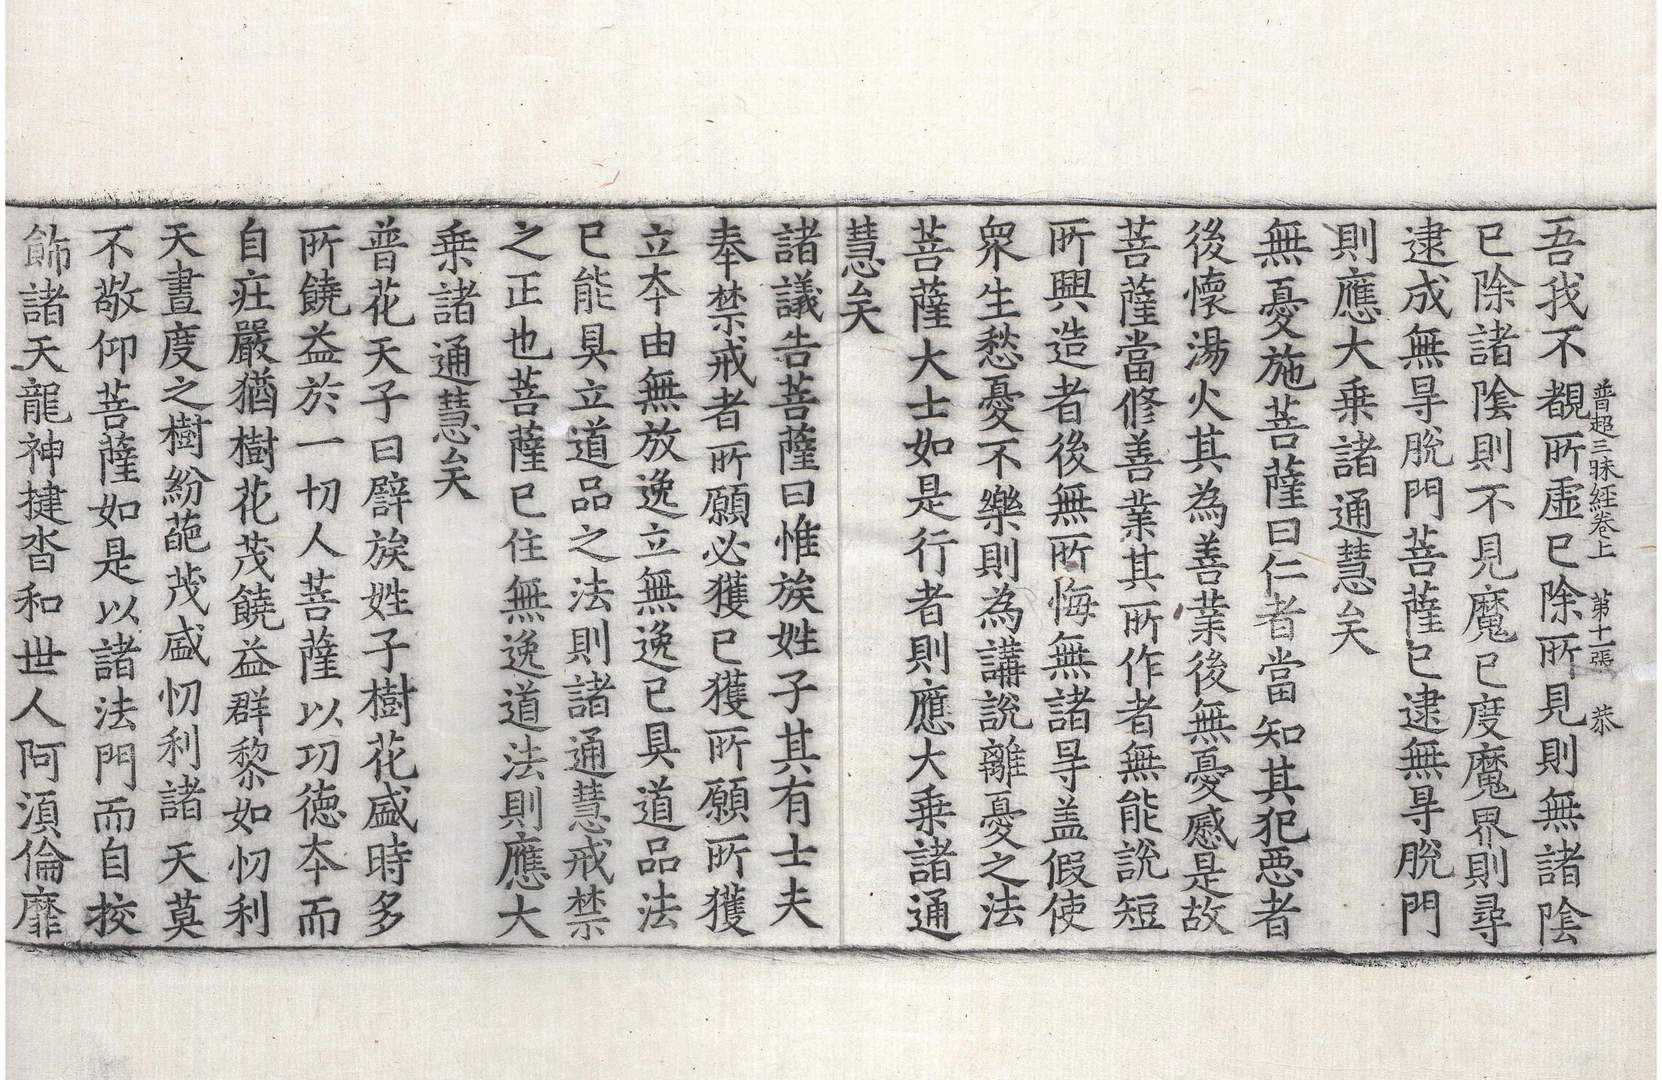 普超三昧經卷上　第十一張　恭
吾我不覩所虛已除所見則無諸陰
已除諸陰則不見魔已度魔界則尋
逮成無㝵脫門菩薩已逮無㝵脫門
則應大乗諸通慧矣
無憂施菩薩曰仁者當知其犯惡者
後懷湯火其為善業後無憂慼是故
菩薩當修善業其所作者無能說短
所興造者後無所悔無諸㝵盖假使
衆生愁憂不樂則為講說離憂之法
菩薩大士如是行者則應大乗諸通
慧矣
諸議告菩薩曰惟族姓子其有士夫
奉禁戒者所願必獲已獲所願所獲
立夲由無放逸立無逸已具道品法
已能具立道品之法則諸通慧戒禁
之正也菩薩已住無逸道法則應大
乗諸通慧矣
普花天子曰譬族姓子樹花盛時多
所饒益於一切人菩薩以功德夲而
自莊嚴猶樹花茂饒益群黎如忉利
天晝度之樹紛葩茂盛忉利諸天莫
不敬仰菩薩如是以諸法門而自挍
飾諸天龍神揵沓和世人阿湏倫靡